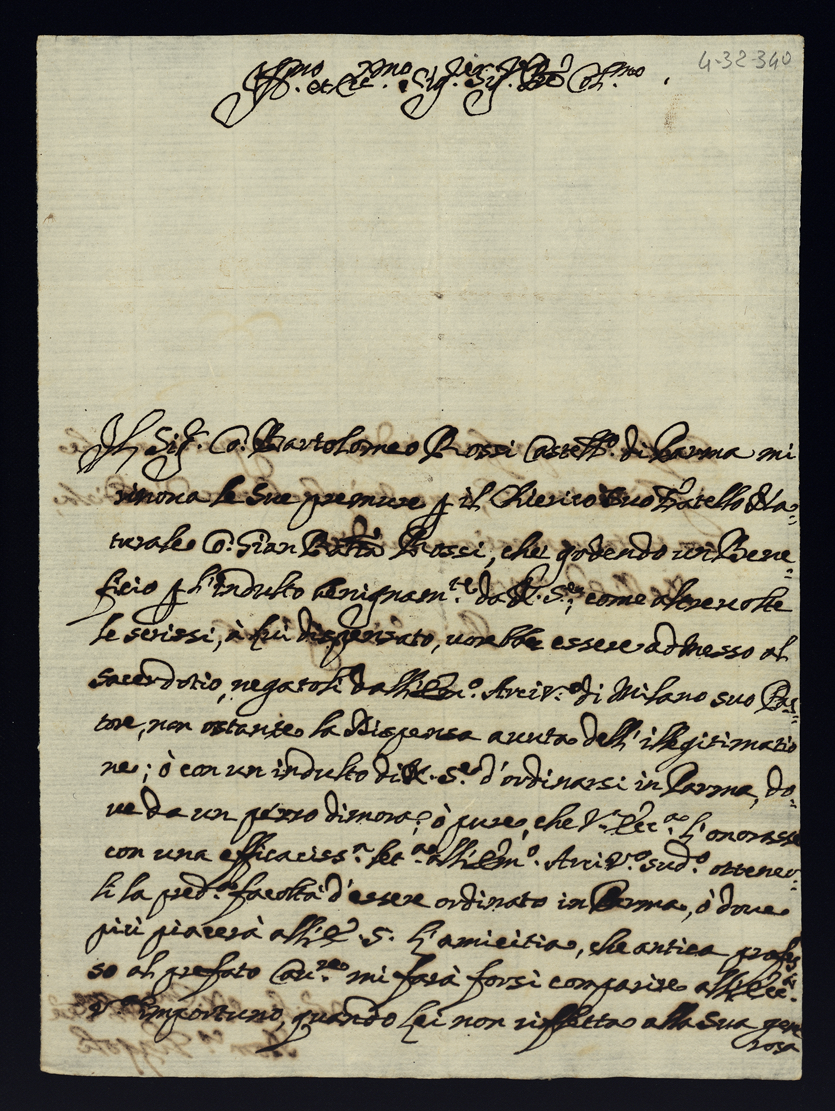 4-32-340
Ill.mo et Ecc.mo Sig.r Sig.r P.ron Col.mo
Il Sig.r Co: Bartolomeo Rossi Castell.o di Parma mi
rinova le sue premure p il Chierico suo Fratello Na=
turale Co: Gian Batta Rossi, che godendo un Bene=
ficio p l'indulto benignam.te da N. S.re, come altre volte
le scrissi, à lui dispensato, vorebbe essere admesso al
sacerdotio, negatoli dall'Em.o Arciv.o di Milano suo Pas=
tore, non ostante la Dispensa avuta dell'illegitimatio
ne; ò con un indulto di N. S.re d'ordinarsi in Parma, do=
ve da un pezzo dimora; ò pure, che V. Ecc.za l'onorasse
con una efficaciss.a let.a all'Em.o Arciv.o sud.o ottener=
li la pred.a facoltà d'essere ordinato in Parma, ò dove
più piacerà all'E. S. L'amicitia, che antica profes
so al prefato Cav.re mi farà forsi comparire all'Ecc.
V.a importuno, quando Lei non rifletta alla sua gene
rosa